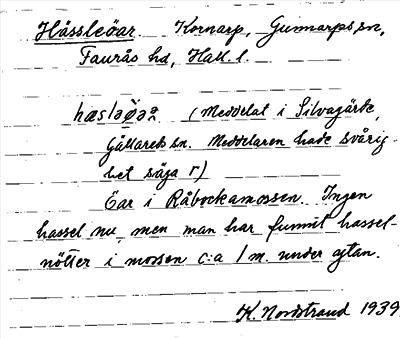 Hässleöar Kornarp, Gunnarps sn,
Faurås hd, Hall. l.
(Meddelat i Silvagärde,
Gällareds sn. Meddelaren hade svårig-
het säga r)
Öar i Råbockamossen. Ingen
hassel nu, men man har funnit hassel-
nötter i mossen c:a 1 m. under ytan.
K. Nordstrand 1939